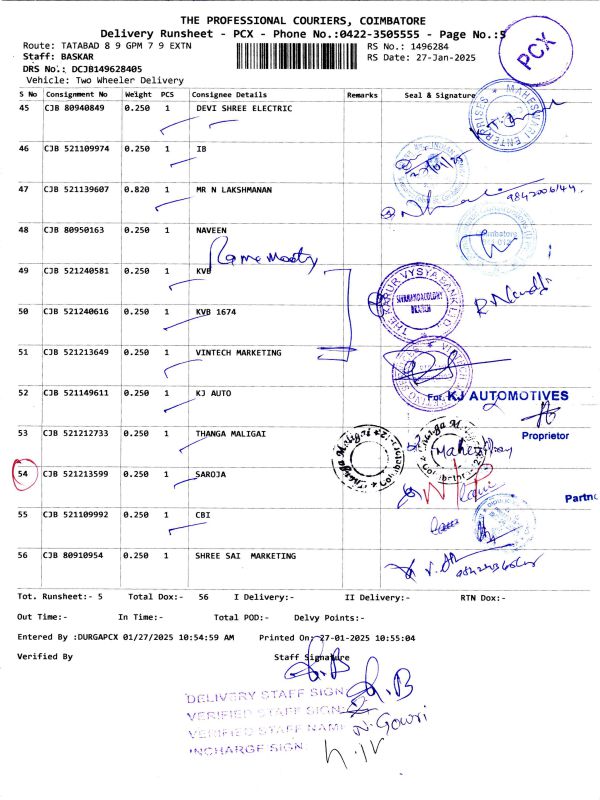 THE PROFESSIONAL COURIERS, COIMBATORE
Delivery Runsheet - PCX - Phone No.:0422-3505555 - Page No.:5
PCX
Route: TATABAD 8 9 GPM 7 9 EXTN
RS No.: 1496284
Staff: BASKAR
RS Date: 27-Jan-2025
DRS No.: DCJB149628405
Vehicle: Two Wheeler Delivery
S No Consignment No Weight PCS Consignee Details Remarks Seal & Signature
45 CJB 80940849 0.250 1 DEVI SHREE ELECTRIC
MAHESWARI ENTERPRISES
46 CJB 521109974 0.250 1 IB
47 CJB 521139607 0.820 1 MR N LAKSHMANAN
48 CJB 80950163 0.250 1 NAVEEN
Coimbatore
49 CJB 521240581 0.250 1 KVB
THE KARUR VYSYA BANK LTD.
SIVANANDACOLONY
BRANCH
50 CJB 521240616 0.250 1 KVB 1674
51 CJB 521213649 0.250 1 VINTECH MARKETING
52 CJB 521149611 0.250 1 KJ AUTO
For KJ AUTOMOTIVES
Proprietor
53 CJB 521212733 0.250 1 THANGA MALIGAI
Thanga Maligai
54 CJB 521213599 0.250 1 SAROJA
Partne
55 CJB 521109992 0.250 1 CBI
56 CJB 80910954 0.250 1 SHREE SAI MARKETING
Tot. Runsheet:- 5 Total Dox:- 56 I Delivery:- II Delivery:- RTN Dox:-
Out Time:- In Time:- Total POD:- Delvy Points:-
Entered By :DURGAPCX 01/27/2025 10:54:59 AM Printed On: 27-01-2025 10:55:04
Verified By Staff Signature
DELIVERY STAFF SIGN
VERIFIED STAFF SIGN:
VERIFIED STAFF NAME N. Gowri
INCHARGE SIGN